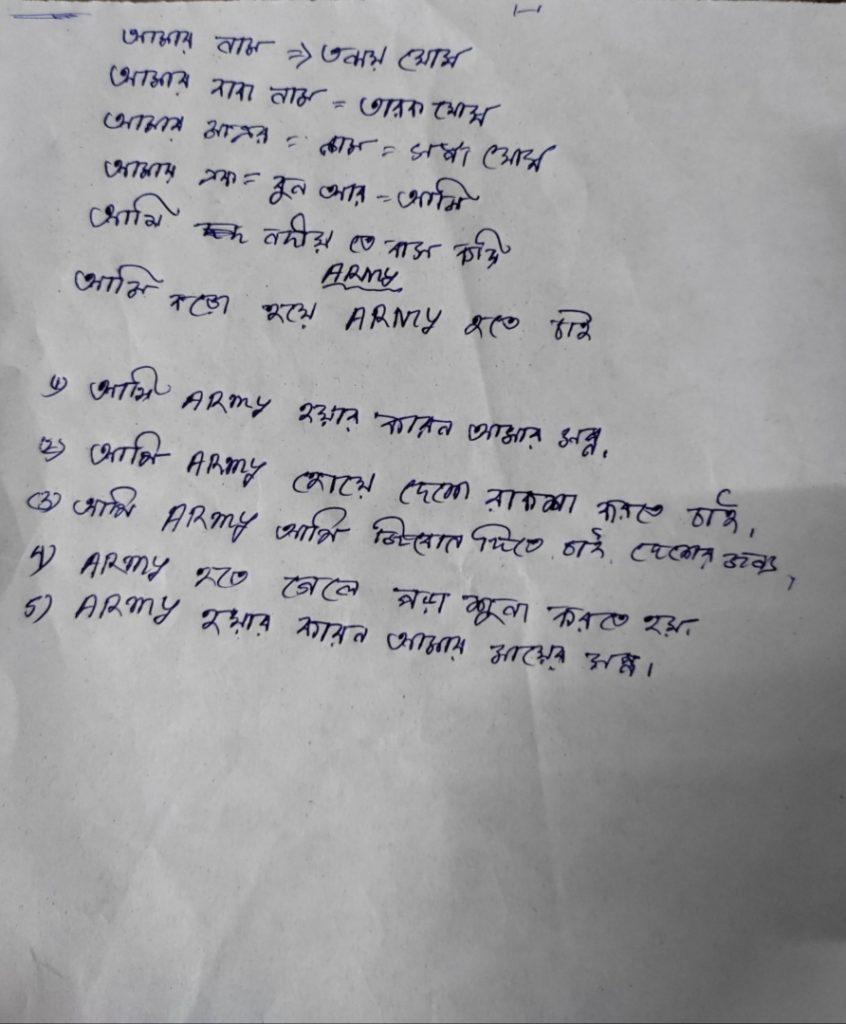 আমার নাম => তন্ময় ঘোষ
আমার বাবা নাম = তারক ঘোষ
আমার মায়ের = নাম = সন্ধা ঘোষ
আমার এক = বুন আর = আমি
আমি নদীয়া তে বাস করি
ARMY
আমি বড়ো হয়ে ARMY হতে চাই
1) আমি ARMY হয়ার কারন আমার সপ্ন,
2) আমি ARMY হোয়ে দেশে রাকশা করতে চাই,
(3) আমি ARMY আমি জিবোন দিতে চাই দেশের জন্য,
4) ARMY হতে গেলে পড়া শুনা করতে হয়.
5) ARMY হয়ার কারন আমার মায়ের সপ্ন।